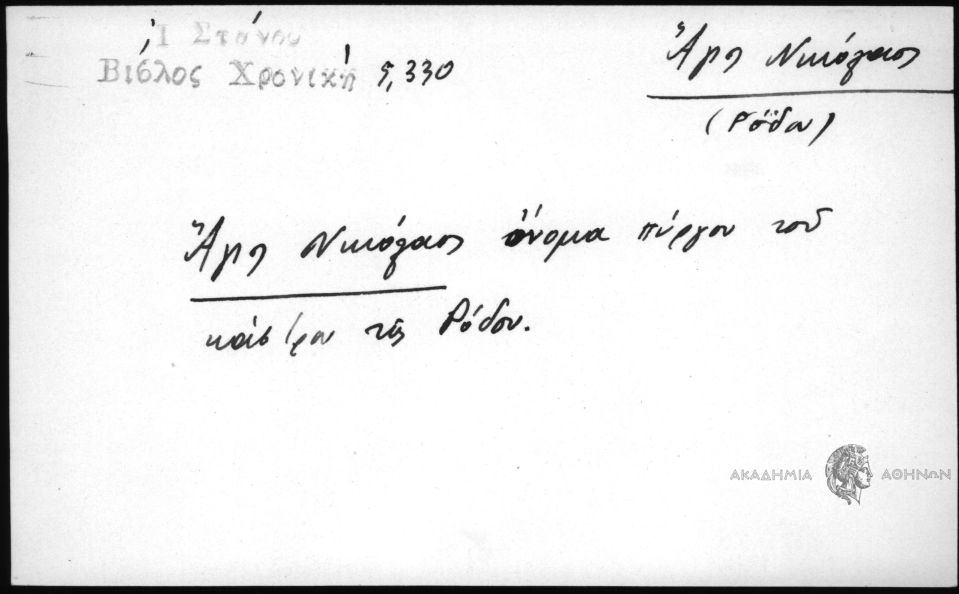 Ἰ Στάνου
Βίβλος Χρονική ς, 330
Ἅγις Νικόλαος
(Ρόδου)
Ἅγις Νικόλαος ὄνομα πύργου τοῦ
κάστρου τῆς Ρόδου.
ΑΚΑΔΗΜΙΑ ΑΘΗΝΩΝ